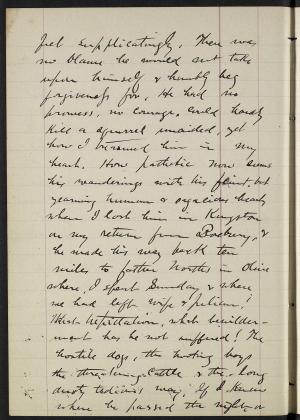 feet supplicatingly. There was
no blame he would not take
upon himself & humbly beg
forgiveness for. He had no
prowess, no courage, could hardly
kill a squirrel unaided, yet
how I treasured him in my
heart. How pathetic now seems
his wanderings with his faint, but
yearning human & sagacious heart,
when I lost him in Kingston
on my return from Roxbury, &
he made his way back ten
miles to father North's in Olive
where, I spent Sunday & where
we had left wife & Julian!
What trepidation, what bewilder-
ment has he not suffered! The
hostile dogs, the hooting boys
the threatening cattle & the long
dusty tedious way; If I knew
where he passed the night or